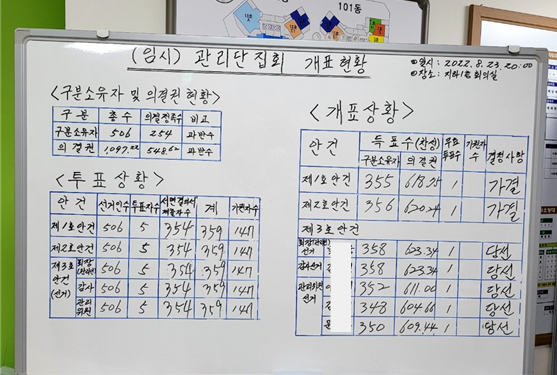 101동
(임시) 관리단집회 개표현황
일시: 2022. 8. 23. 20:00
장소: 지하1층 회의실
<구분소유자 및 의결권 현황>
구 분 총 수 의결정족수 비고
구분소유자 506 254 과반수
의결권 1,097.22 548.62 과반수
<투표상황>
안 건 선거인수 투표자수 서면결의서 제출자수 계 기권자수
제1호안건 506 5 354 359 147
제2호안건 506 5 354 359 147
제3호 안건 (선거)
회장 506 5 354 359 147
감사 506 5 354 359 147
관리위원 506 5 354 359 147
<개표상황>
안건 득표수(찬성) 무효투표수 기권자수 결정사항
구분소유자 의결권
제1호안건 355 618.25 1 가결
제2호안건 356 620.24 1 가결
제3호안건
회장 선거 358 623.34 1 당선
감사선거 358 623.34 1 당선
관리위원 선거 352 611.00 1 당선
348 604.66 1 당선
350 609.44 1 당선